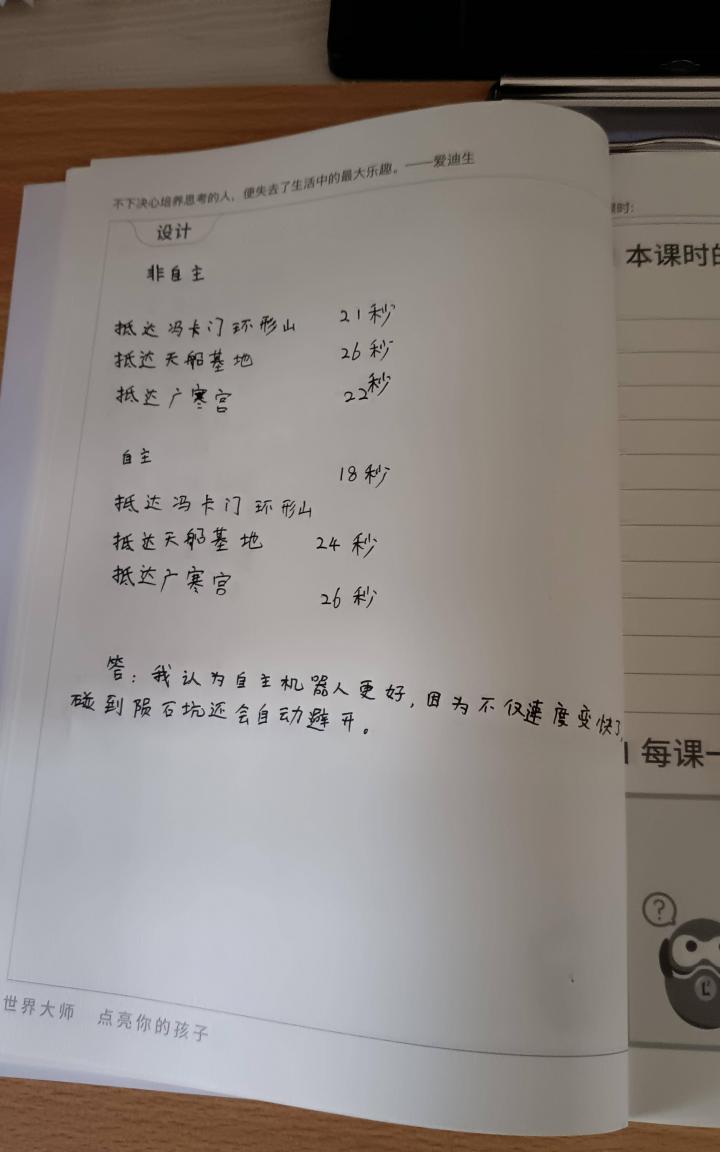 不下决心培养思考的人，便失去了生活中的最大乐趣。——爱迪生
设计
非自主
抵达冯卡门环形山 21秒
抵达天船基地 26秒
抵达广寒宫 22秒
自主
抵达冯卡门环形山 18秒
抵达天船基地 24秒
抵达广寒宫 26秒
答：我认为自主机器人更好，因为不仅速度变快了，
碰到陨石坑还会自动避开。
世界大师 点亮你的孩子
课时：
本课时的
每课一
?
L